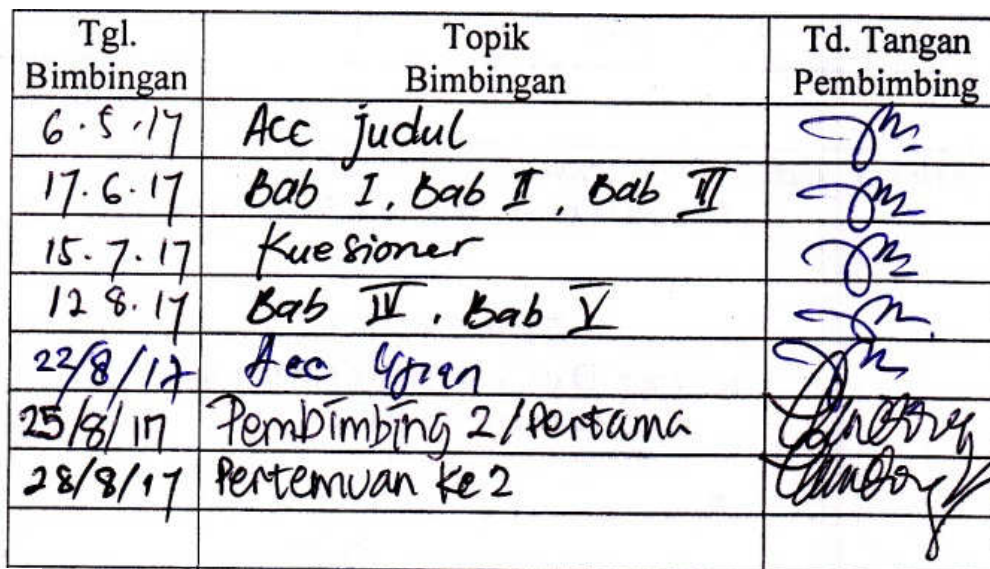 Tgl. Bimbingan Topik Bimbingan Td. Tangan Pembimbing
6.5.17 Acc judul
17.6.17 Bab I, Bab II, Bab III
15.7.17 Kuesioner
12 8.17 Bab IV. Bab V
22/8/17 Acc Ujian
25/8/17 Pembimbing 2/Pertama
28/8/17 Pertemuan Ke 2